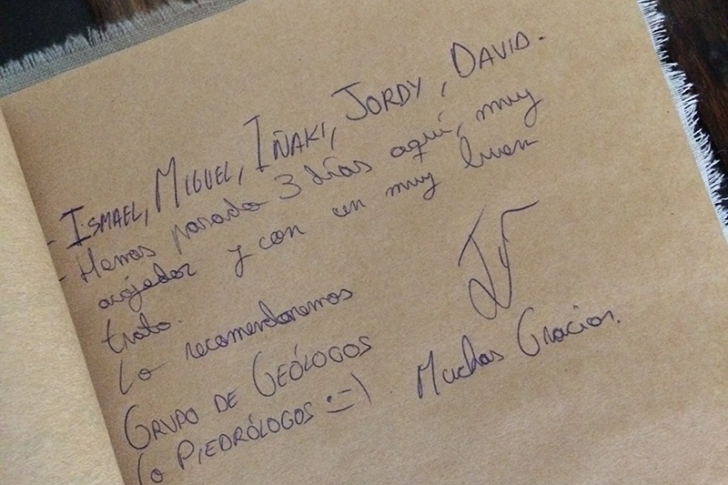 - ISMAEL, MIGUEL, IÑAKI, JORDY, DAVID.
- Hemos pasado 3 días aquí, muy
acojedor y con un muy buen
trato.
Lo recomendaremos
GRUPO DE GEÓLOGOS
lo PIEDRÓLOGOS :-)
Muchas Gracias.